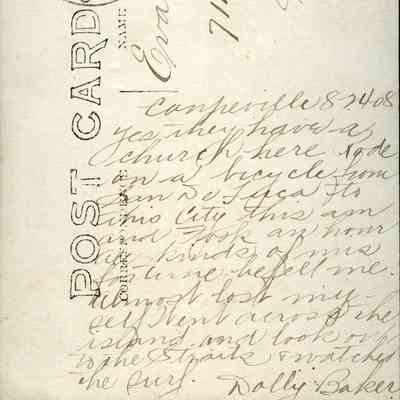 POST CARD
CORRESPONDENCE
NAME
Eva
71
Coupeville 8-24-08
yes they have a
church here rode
on a bicycle from
San De Fuca to
this City this am
and took an hour
all kinds of mis
fortune befell me.
almost lost my-
self Went across the
island and look over
to the Straits & watched
the surf. Dolly Baker.